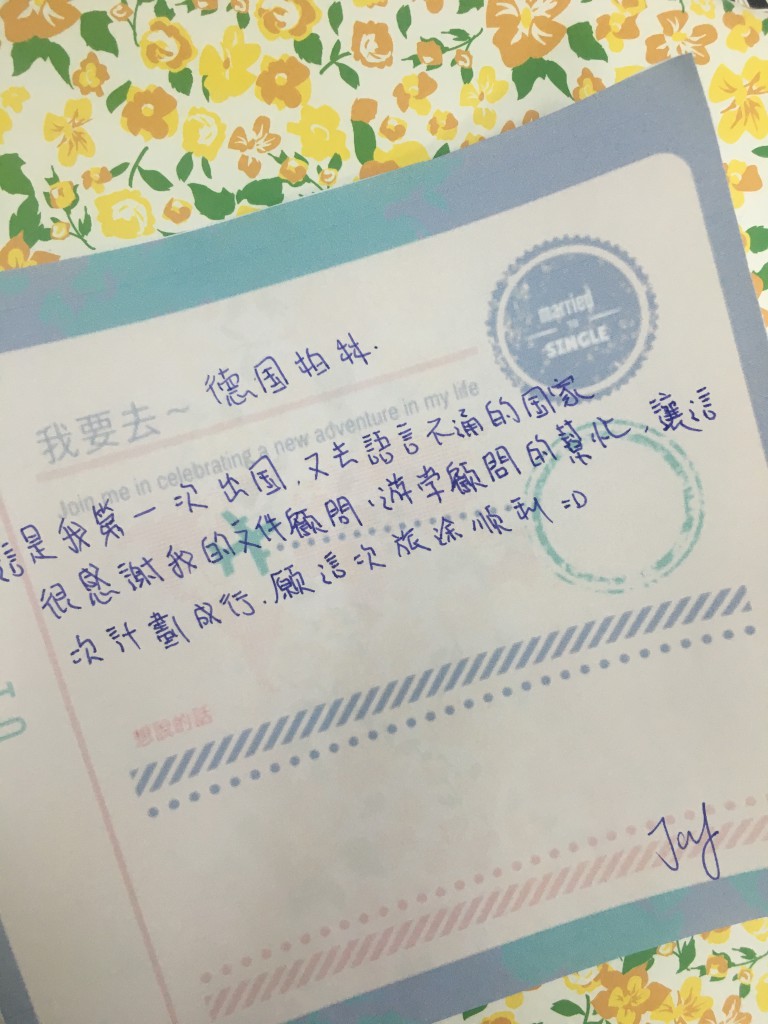 married
TO
SINGLE
我要去~ 德国柏林.
Join me in celebrating a new adventure in my life
這是我第一次出国,又去語言不通的国家
很感謝我的文件顧問,游学顧問的幫忙,讓這
次計劃成行.願這次旅途順利 =D
想說的話
TO
Jay